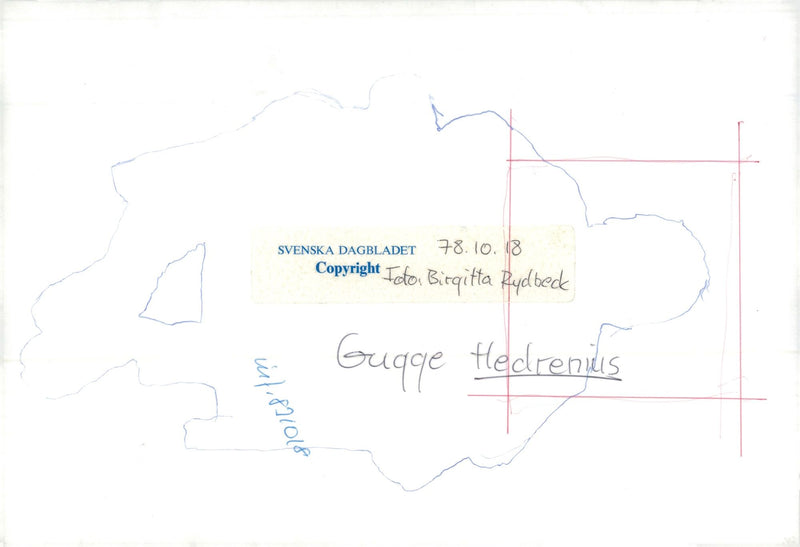 SVENSKA DAGBLADET 78.10.18
Copyright Foto. Birgitta Rydbeck
Gugge Hedrenius